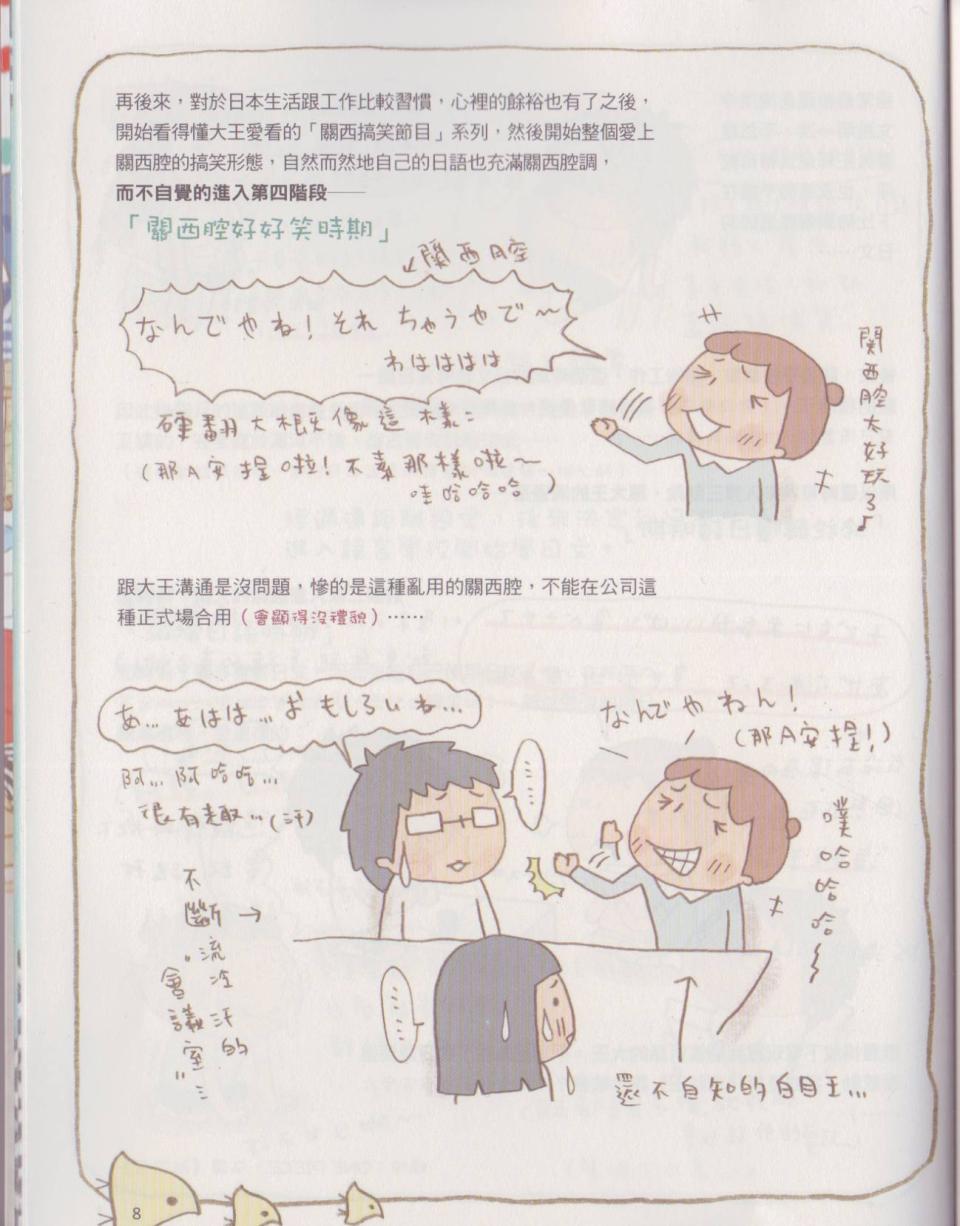 再後來，對於日本生活跟工作比較習慣，心裡的餘裕也有了之後，
開始看得懂大王愛看的「關西搞笑節目」系列，然後開始整個愛上
關西腔的搞笑形態，自然而然地自己的日語也充滿關西腔調，
而不自覺的進入第四階段——
「關西腔好好笑時期」
↙関西腔
なんでやね！それ ちゃうやで〜
わはははは
硬翻大概像這樣：
(那A安捏啦！不素那樣啦〜
哇哈哈哈)
関西腔太好玩了♪
跟大王溝通是沒問題，慘的是這種亂用的關西腔，不能在公司這
種正式場合用（會顯得沒禮貌）……
あ…あはは…おもしろいね…
阿…阿哈哈…
很有趣…(汗)
なんでやねん！
(那A安捏！)
噗哈哈哈〜
不斷→
流冷汗的
會議室…
還不自知的白目王…
8